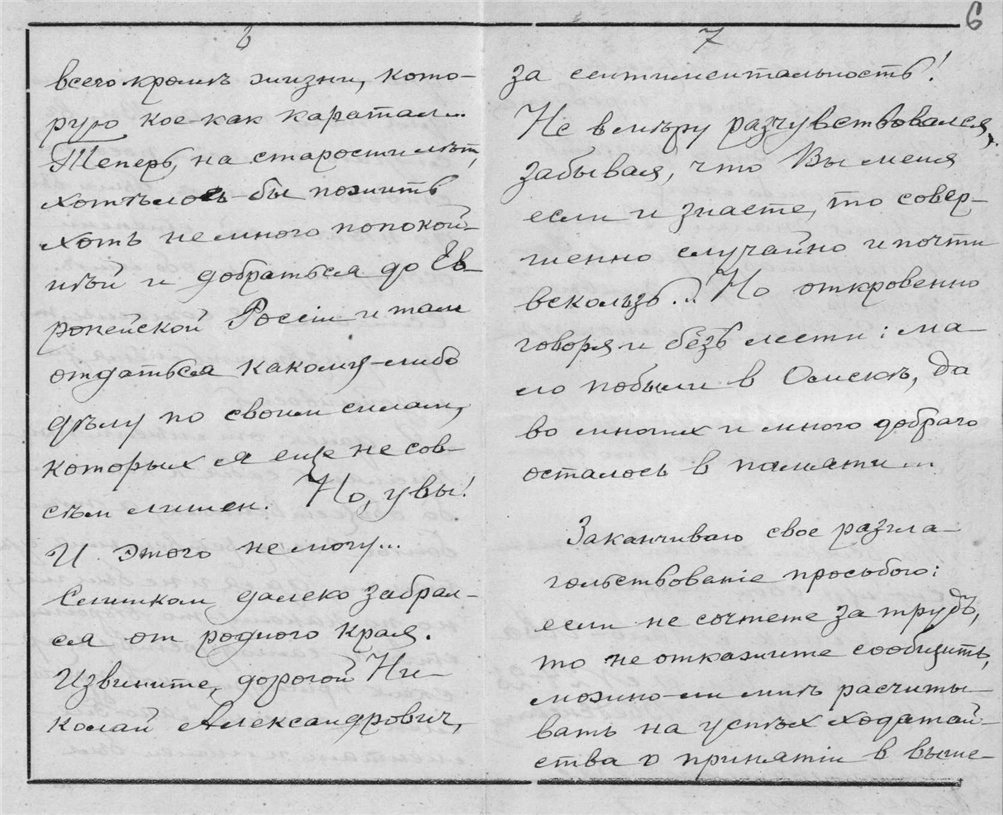 6
6
всего кромѣ жизни, кото-
рую кое-как каратал...
Теперь, на старости лѣт,
хотѣлось-бы пожить
хоть немного попокой-
нѣй и добраться до Ев-
ропейской Россіи и там
отдаться какому-либо
дѣлу по своим силам,
которых я еще не сов-
сѣм лишен. Но, увы!
И этого не могу...
Слишком далеко забрал-
ся от родного края.
Извините, дорогой Ни-
колай Александрович,
7
за сентиментальность!
Не в мѣру разчувствовался,
забывая, что Вы меня
если и знаете, то совер-
шенно случайно и почти
вскользь... Но откровенно
говоря и безъ лести: ма-
ло побыли в Омскѣ, да
во многих и много добраго
осталось в памяти...
Заканчиваю свое разгла-
гольствованіе просьбою:
если не сочтете за трудъ,
то не откажите сообщить,
можно-ли мнѣ расчиты-
вать на успѣх ходатай-
ства о принятіи в выше-